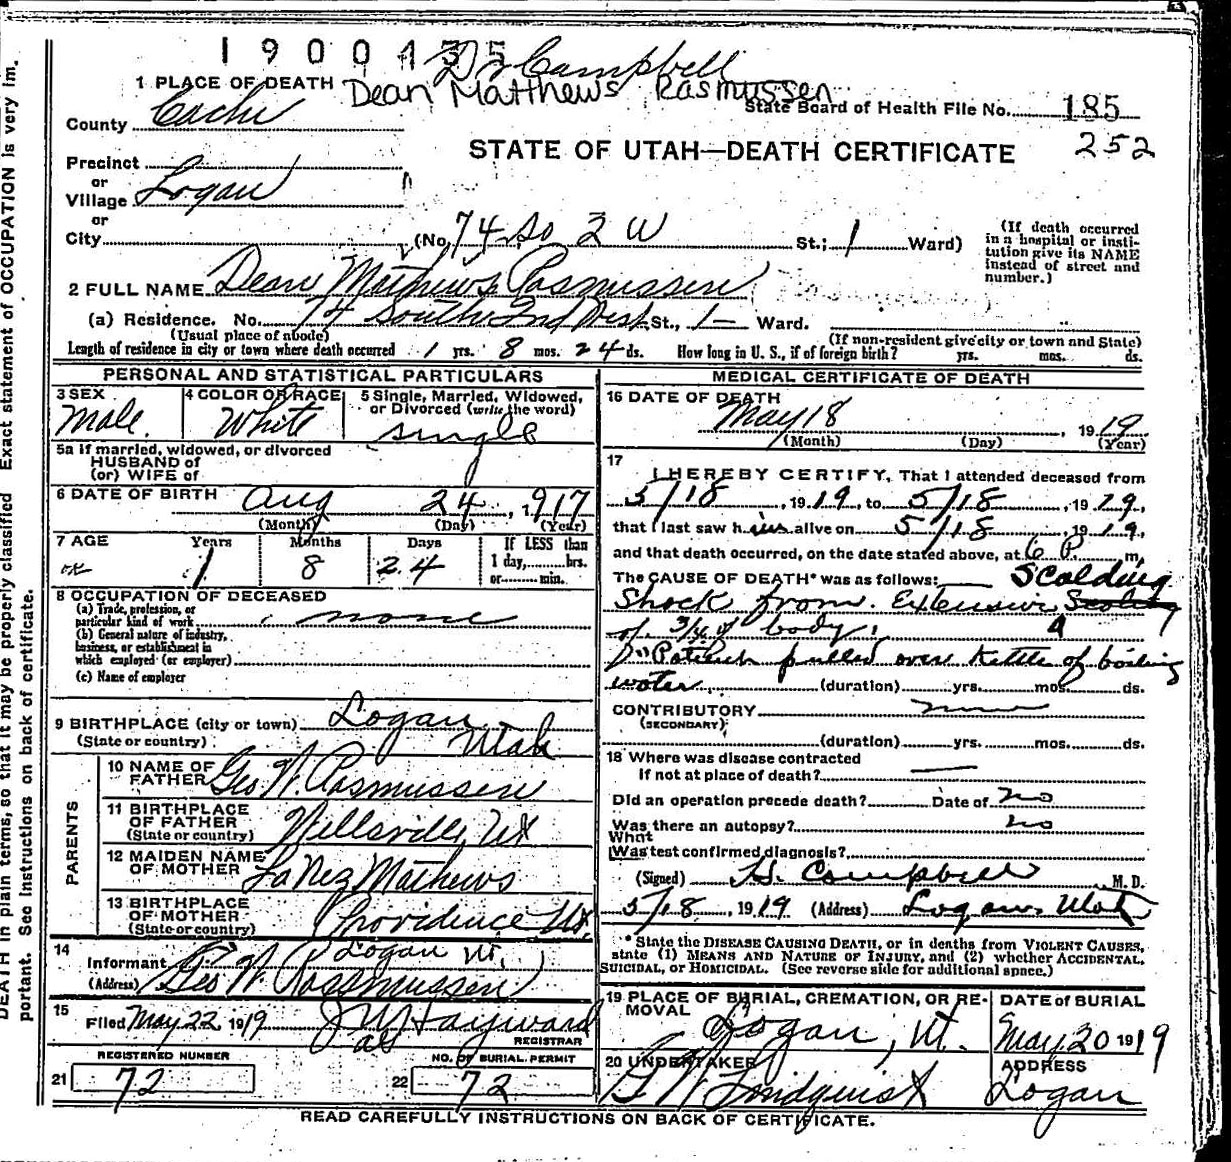 1900435
Dr Campbell
1 PLACE OF DEATH Dean Matthews Rasmussen
State Board of Health File No. 185
County Cache
252
STATE OF UTAH—DEATH CERTIFICATE
Precinct
or
Village Logan
or
City (No. 74 So 2 W St.; 1 Ward)
(If death occurred in a hospital or insti-
tution give its NAME
instead of street and
number.)
2 FULL NAME Dean Mathews Rasmussen
(a) Residence. No. 74 South 2nd West St., 1 — Ward.
(Usual place of abode) (If non-resident give city or town and State)
Length of residence in city or town where death occurred 1 yrs. 8 mos. 24 ds. How long in U. S., if of foreign birth? yrs. mos. ds.
PERSONAL AND STATISTICAL PARTICULARS
3 SEX Male
4 COLOR OR RACE White
5 Single, Married, Widowed,
or Divorced (write the word)
single
5a If married, widowed, or divorced
HUSBAND of
(or) WIFE of
6 DATE OF BIRTH Aug 24, 1917
(Month) (Day) (Year)
7 AGE Years Months Days If LESS than
1 8 24 1 day, hrs.
or min.
8 OCCUPATION OF DECEASED
(a) Trade, profession, or
particular kind of work none
(b) General nature of industry,
business, or establishment in
which employed (or employer)
(c) Name of employer
9 BIRTHPLACE (city or town) Logan
(State or country) Utah
PARENTS
10 NAME OF
FATHER Geo. W. Rasmussen
11 BIRTHPLACE
OF FATHER
(State or country) Wellsville, Ut
12 MAIDEN NAME
OF MOTHER LaNez Mathews
13 BIRTHPLACE
OF MOTHER
(State or country) Providence Ut.
14 Logan Ut.
Informant
(Address) Geo W Rassmussen
15 Filed May 22 1919 J W Hayward
REGISTRAR
REGISTERED NUMBER NO. OF BURIAL PERMIT
21 72 22 72
MEDICAL CERTIFICATE OF DEATH
16 DATE OF DEATH
May 18, 1919
(Month) (Day) (Year)
17
I HEREBY CERTIFY, That I attended deceased from
5/18, 1919, to 5/18, 1919,
that I last saw him alive on 5/18, 1919,
and that death occurred, on the date stated above, at 6 P. m.
The CAUSE OF DEATH* was as follows: Scalding
Shock from Extensive
of 3/4 of body,
Patient pulled over Kettle of boiling
water (duration) yrs. mos. ds.
CONTRIBUTORY
(SECONDARY)
(duration) yrs. mos. ds.
18 Where was disease contracted
if not at place of death?
Did an operation precede death? Date of no
Was there an autopsy? no
What
Was test confirmed diagnosis?
(Signed) H. Campbell M. D.
5/18, 1919 (Address) Logan, Utah
* State the DISEASE CAUSING DEATH, or in deaths from VIOLENT CAUSES,
state (1) MEANS AND NATURE OF INJURY, and (2) whether ACCIDENTAL,
SUICIDAL, or HOMICIDAL. (See reverse side for additional space.)
19 PLACE OF BURIAL, CREMATION, OR RE-
MOVAL Logan, Ut.
DATE of BURIAL
May 20 1919
20 UNDERTAKER
G W Lindquist
ADDRESS
Logan
READ CAREFULLY INSTRUCTIONS ON BACK OF CERTIFICATE.
DEATH in plain terms, so that it may be properly classified Exact statement of OCCUPATION is very im-
portant. See instructions on back of certificate.